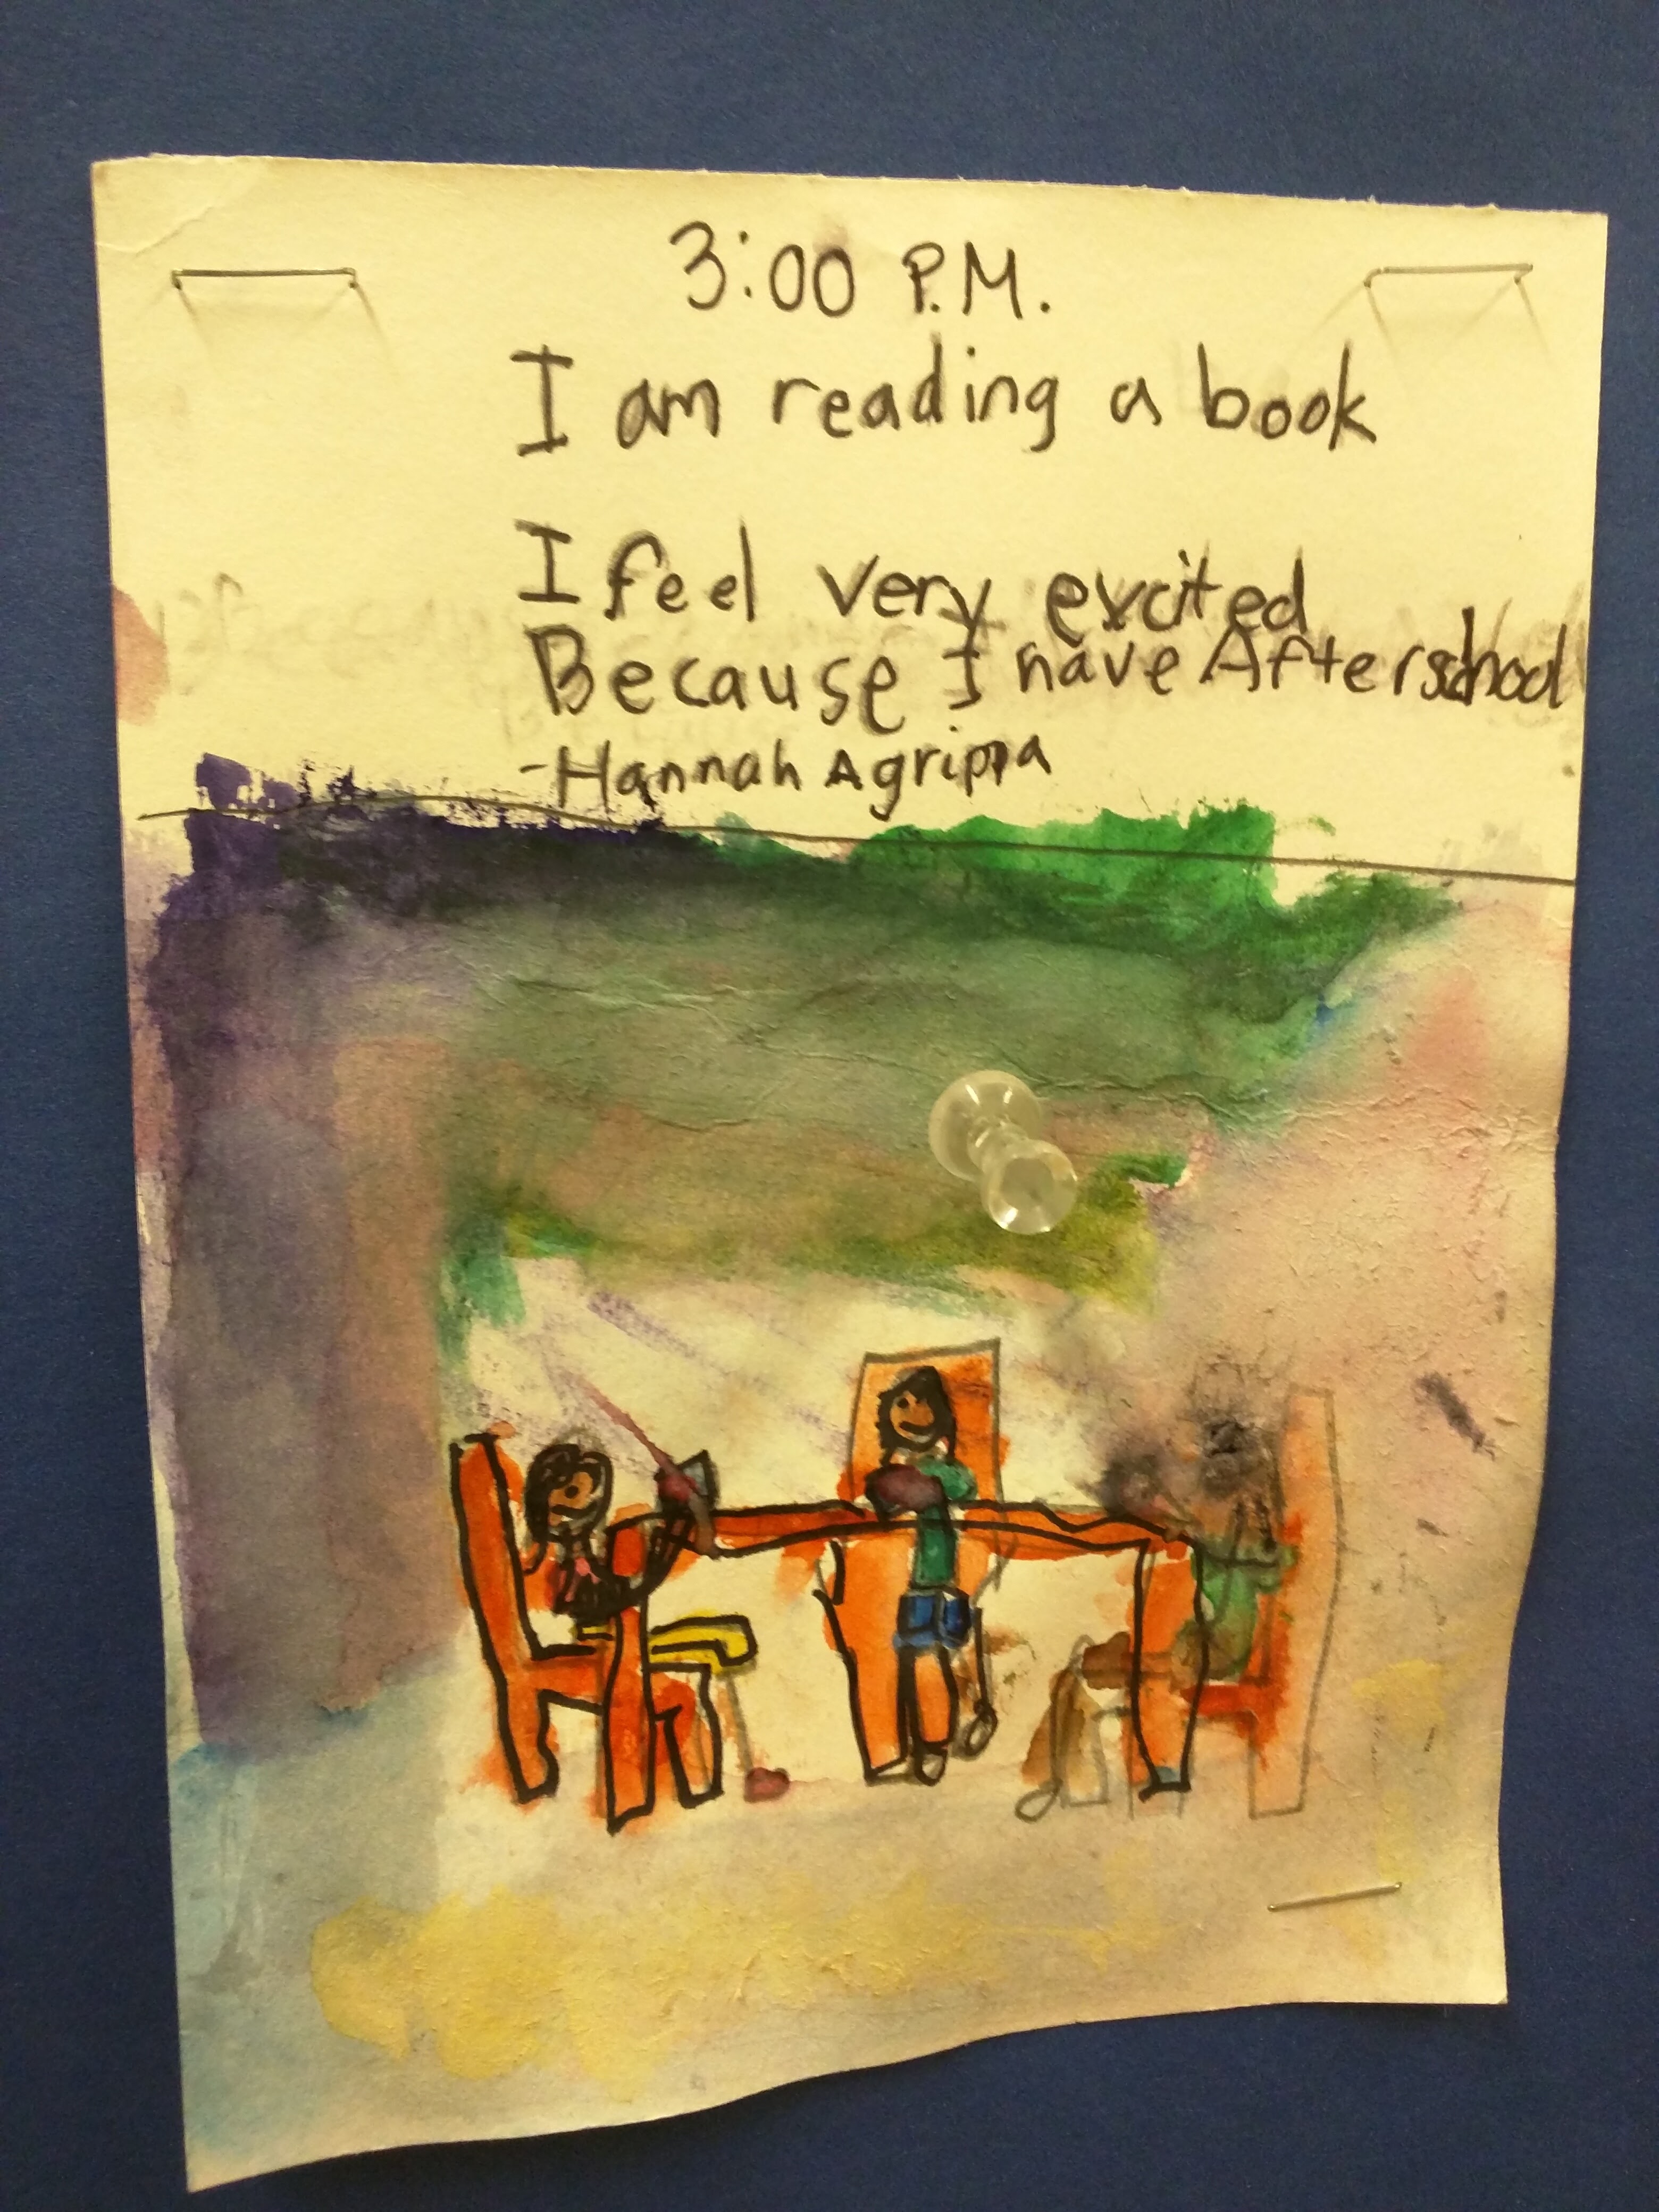 3:00 P.M.
I am reading a book
I feel very excited
Because I have Afterschool
-Hannah Agrippa